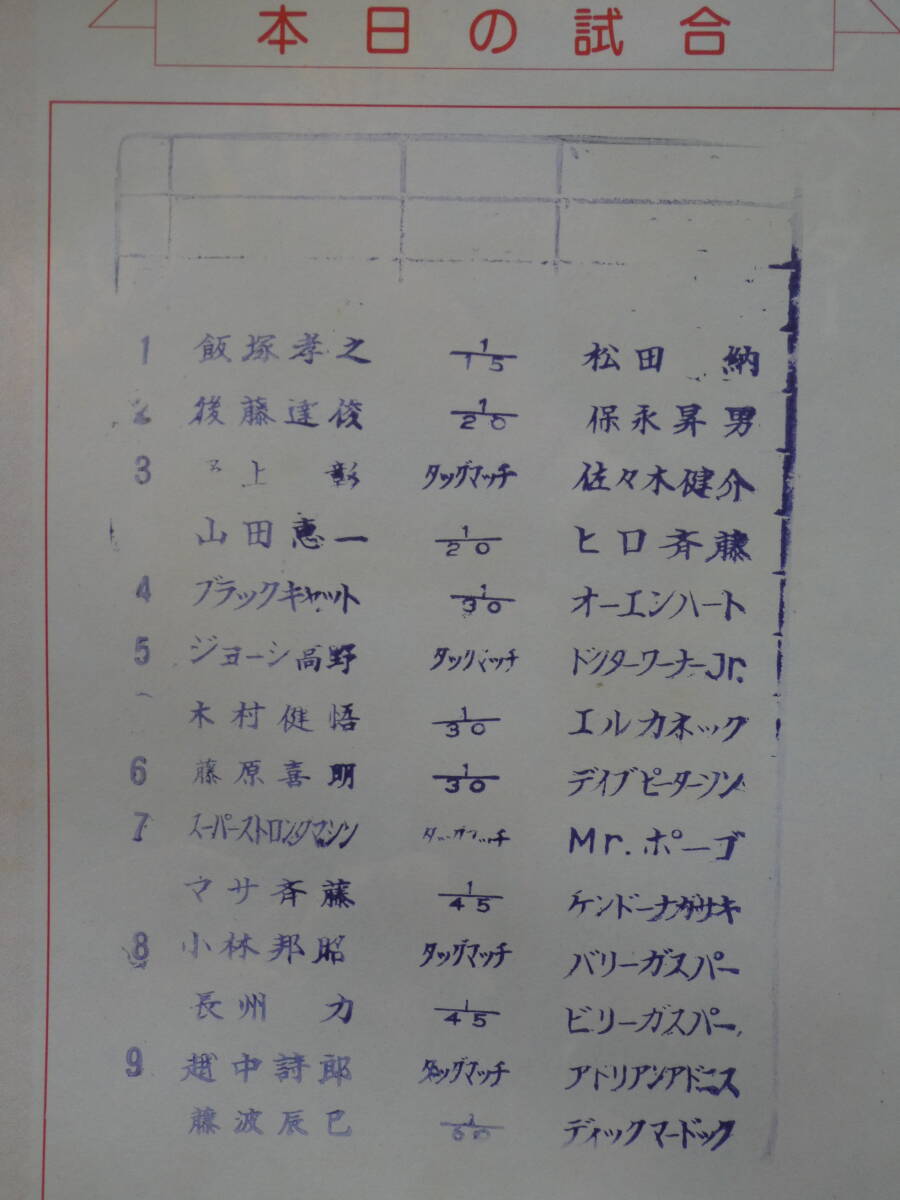 本日の試合
1 飯塚孝之 1/15 松田 納
2 後藤達俊 1/20 保永昇男
3 上 彰 タッグマッチ 佐々木健介
山田恵一 1/20 ヒロ斉藤
4 ブラックキャット 1/30 オーエンハート
5 ジョージ高野 タッグマッチ ドクターワーナーJr.
木村健悟 1/30 エルカネック
6 藤原喜明 1/30 デイブピーターソン
7 スーパーストロングマシン タッグマッチ Mr.ポーゴ
マサ斉藤 1/45 ケンドーナガサキ
8 小林邦昭 タッグマッチ バリーガスパー
長州 力 1/45 ビリーガスパー
9 越中詩郎 タッグマッチ アドリアンアドニス
藤波辰巳 ディックマードック